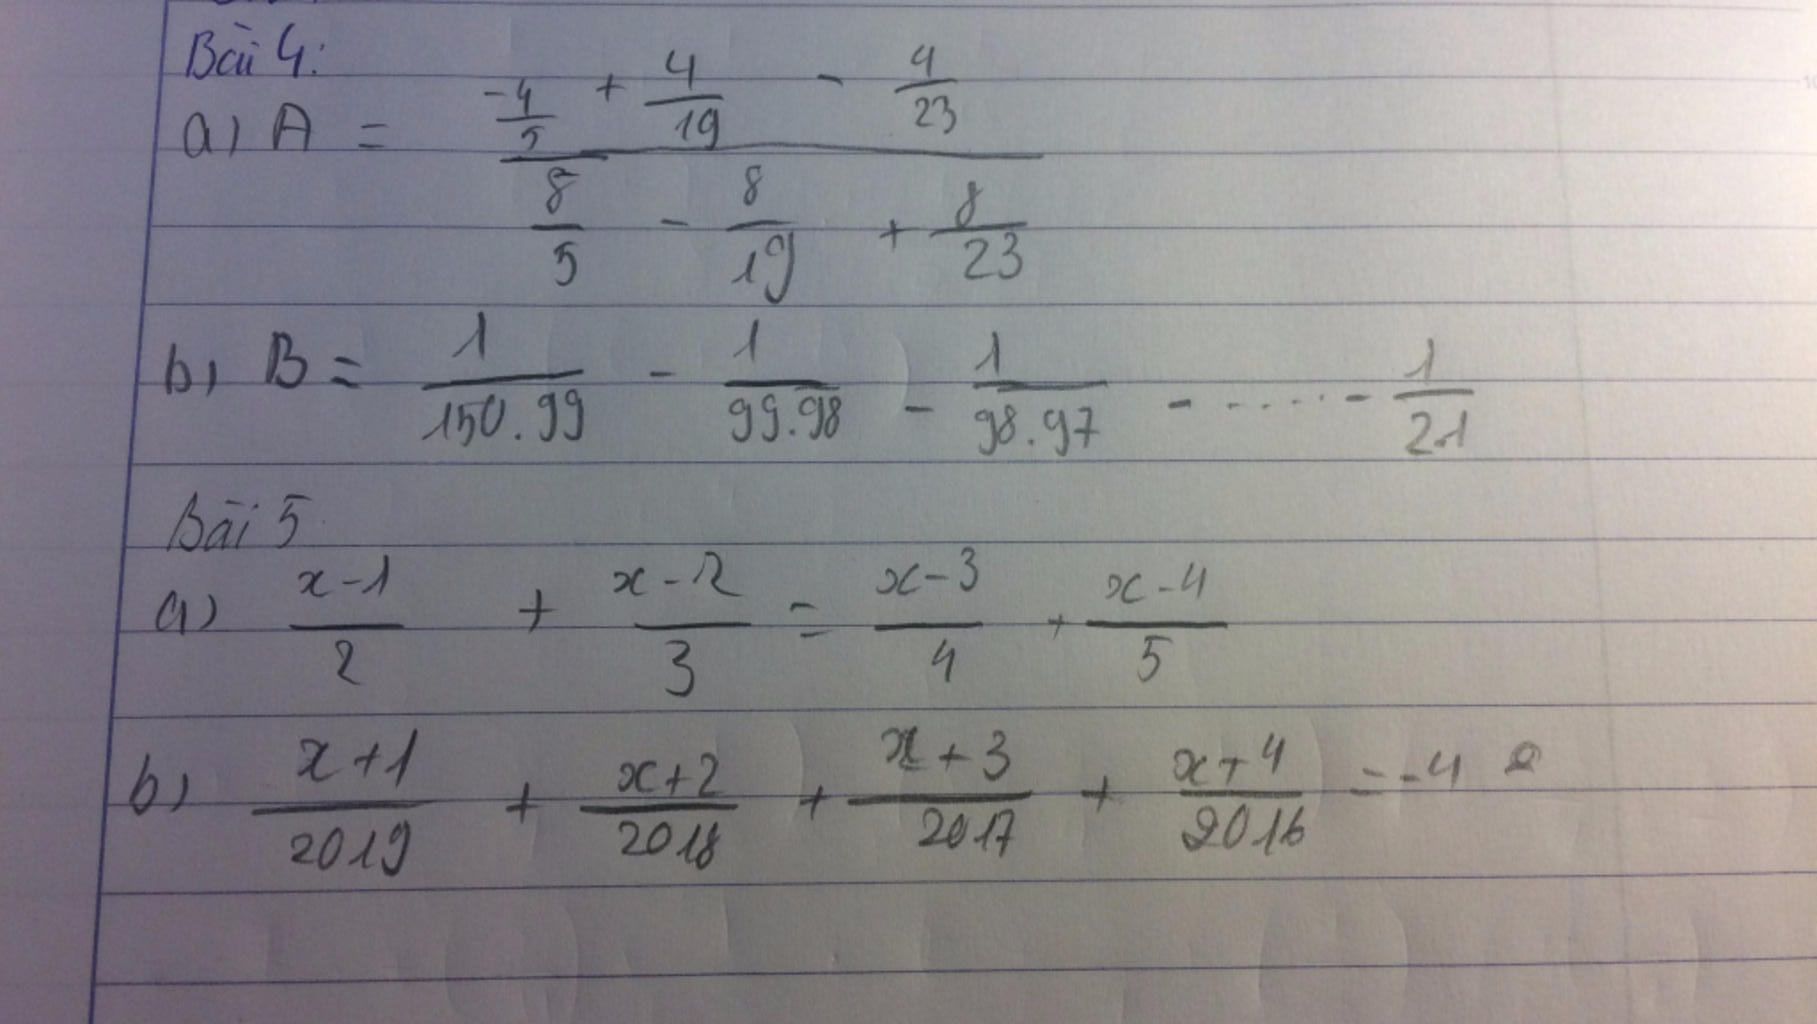 Bài 4:
a) A = (-4/5 + 4/19 - 4/23) / (8/5 - 8/19 + 8/23)
b) B = 1/150.99 - 1/99.98 - 1/98.97 - ..... - 1/2.1
Bài 5
a) x-1/2 + x-2/3 = x-3/4 + x-4/5
b) x+1/2019 + x+2/2018 + x+3/2017 + x+4/2016 = -4